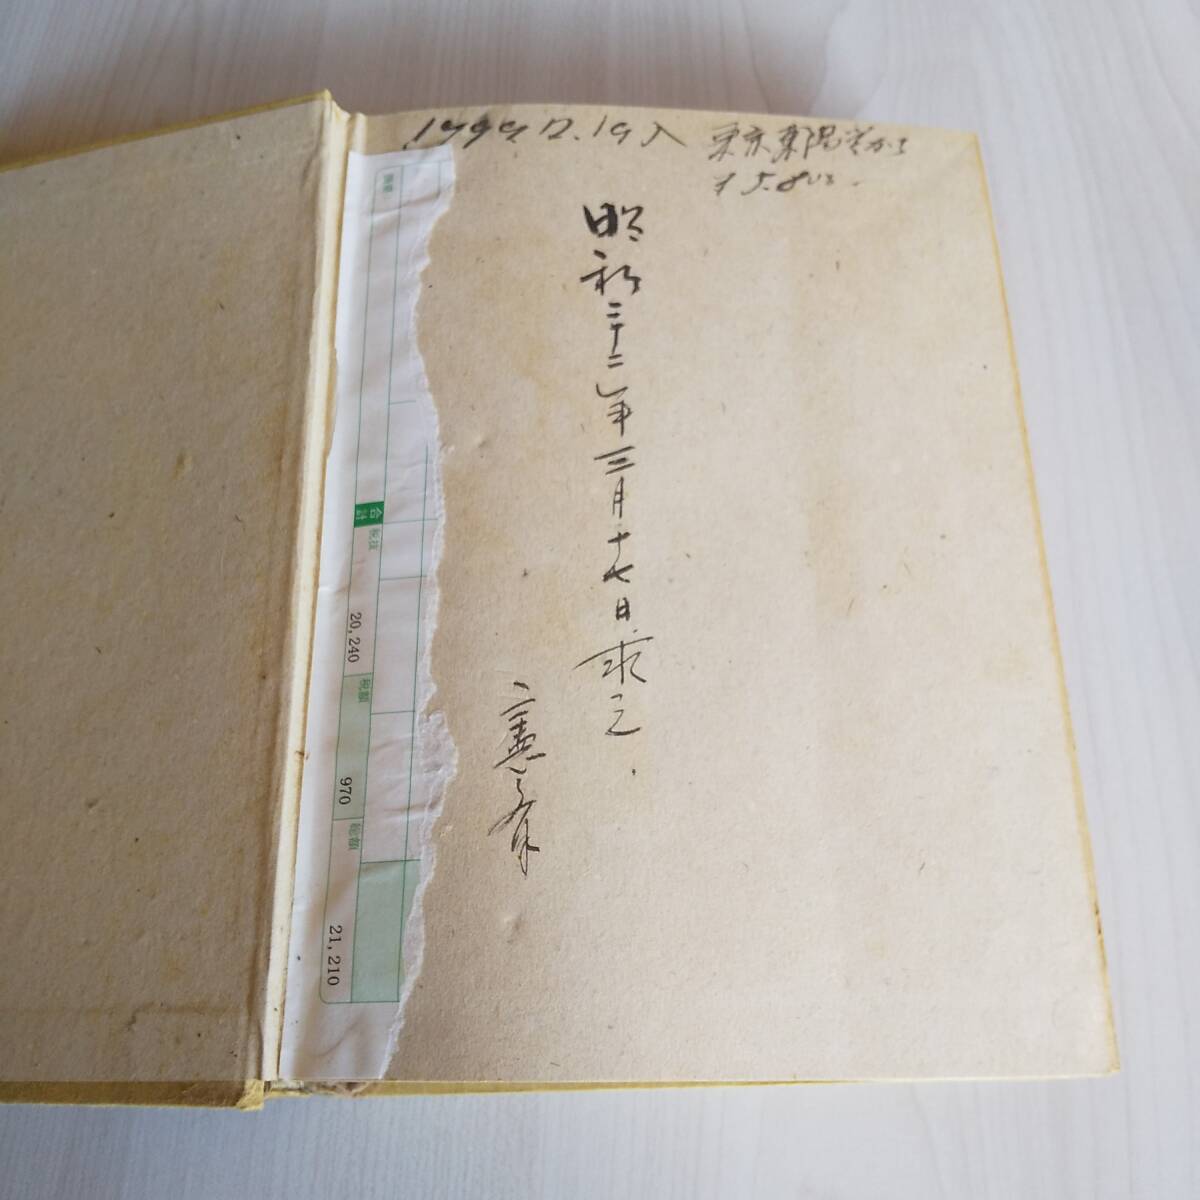 1999 12.19入 東京東陽堂から
¥5.800.
昭和二十二年三月十七日求之.
合計
税抜
20,240
税額
970
総額
21,210